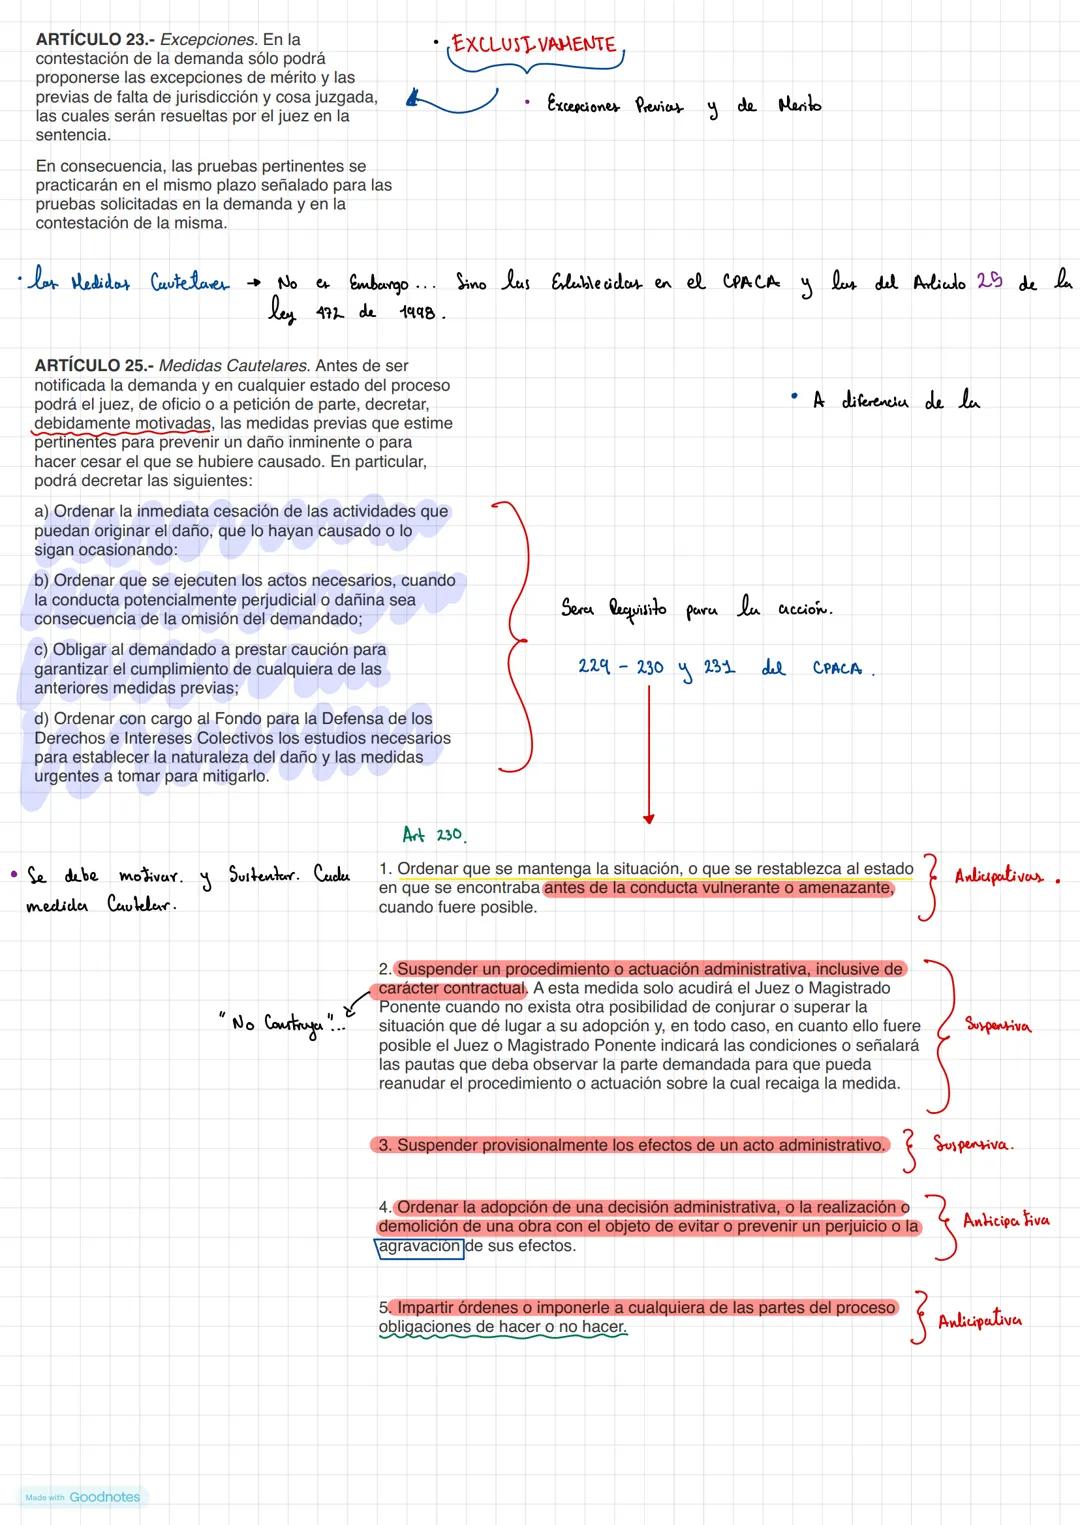 ARTÍCULO 23.- Excepciones. En la
contestación de la demanda sólo podrá
proponerse las excepciones de mérito y las
previas de falta de jurisdicción y cosa juzgada,
las cuales serán resueltas por el juez en la
sentencia.
• EXCLUSIVAMENTE
• Excepciones Previas y de Merito
En consecuencia, las pruebas pertinentes se
practicarán en el mismo plazo señalado para las
pruebas solicitadas en la demanda y en la
contestación de la misma.
• las Medidas Cautelares → No es Embargo... Sino las Establecidas en el CPACA y las del Articulo 25 de la
ley 472 de 1998.
ARTÍCULO 25.- Medidas Cautelares. Antes de ser
notificada la demanda y en cualquier estado del proceso
podrá el juez, de oficio o a petición de parte, decretar,
debidamente motivadas, las medidas previas que estime
pertinentes para prevenir un daño inminente o para
hacer cesar el que se hubiere causado. En particular,
podrá decretar las siguientes:
• A diferencia de la
a) Ordenar la inmediata cesación de las actividades que
puedan originar el daño, que lo hayan causado o lo
sigan ocasionando:
b) Ordenar que se ejecuten los actos necesarios, cuando
la conducta potencialmente perjudicial o dañina sea
consecuencia de la omisión del demandado;
c) Obligar al demandado a prestar caución para
garantizar el cumplimiento de cualquiera de las
anteriores medidas previas;
d) Ordenar con cargo al Fondo para la Defensa de los
Derechos e Intereses Colectivos los estudios necesarios
para establecer la naturaleza del daño y las medidas
urgentes a tomar para mitigarlo.
Sera Requisito para la acción.
229 - 230 y 231 del CPACA.
Art 230.
• Se debe motivar. y Sustentar. Cada
medida Cautelar.
1. Ordenar que se mantenga la situación, o que se restablezca al estado
en que se encontraba antes de la conducta vulnerante o amenazante,
cuando fuere posible.
Anticipativas.
2. Suspender un procedimiento o actuación administrativa, inclusive de
carácter contractual. A esta medida solo acudirá el Juez o Magistrado
Ponente cuando no exista otra posibilidad de conjurar o superar la
situación que dé lugar a su adopción y, en todo caso, en cuanto ello fuere
posible el Juez o Magistrado Ponente indicará las condiciones o señalará
las pautas que deba observar la parte demandada para que pueda
reanudar el procedimiento o actuación sobre la cual recaiga la medida.
"No Construya"...
Suspensiva
3. Suspender provisionalmente los efectos de un acto administrativo.
Suspensiva.
4. Ordenar la adopción de una decisión administrativa, o la realización o
demolición de una obra con el objeto de evitar o prevenir un perjuicio o la
agravación de sus efectos.
Anticipativa
5. Impartir órdenes o imponerle a cualquiera de las partes del proceso
obligaciones de hacer o no hacer.
Anticipativa
Made with Goodnotes